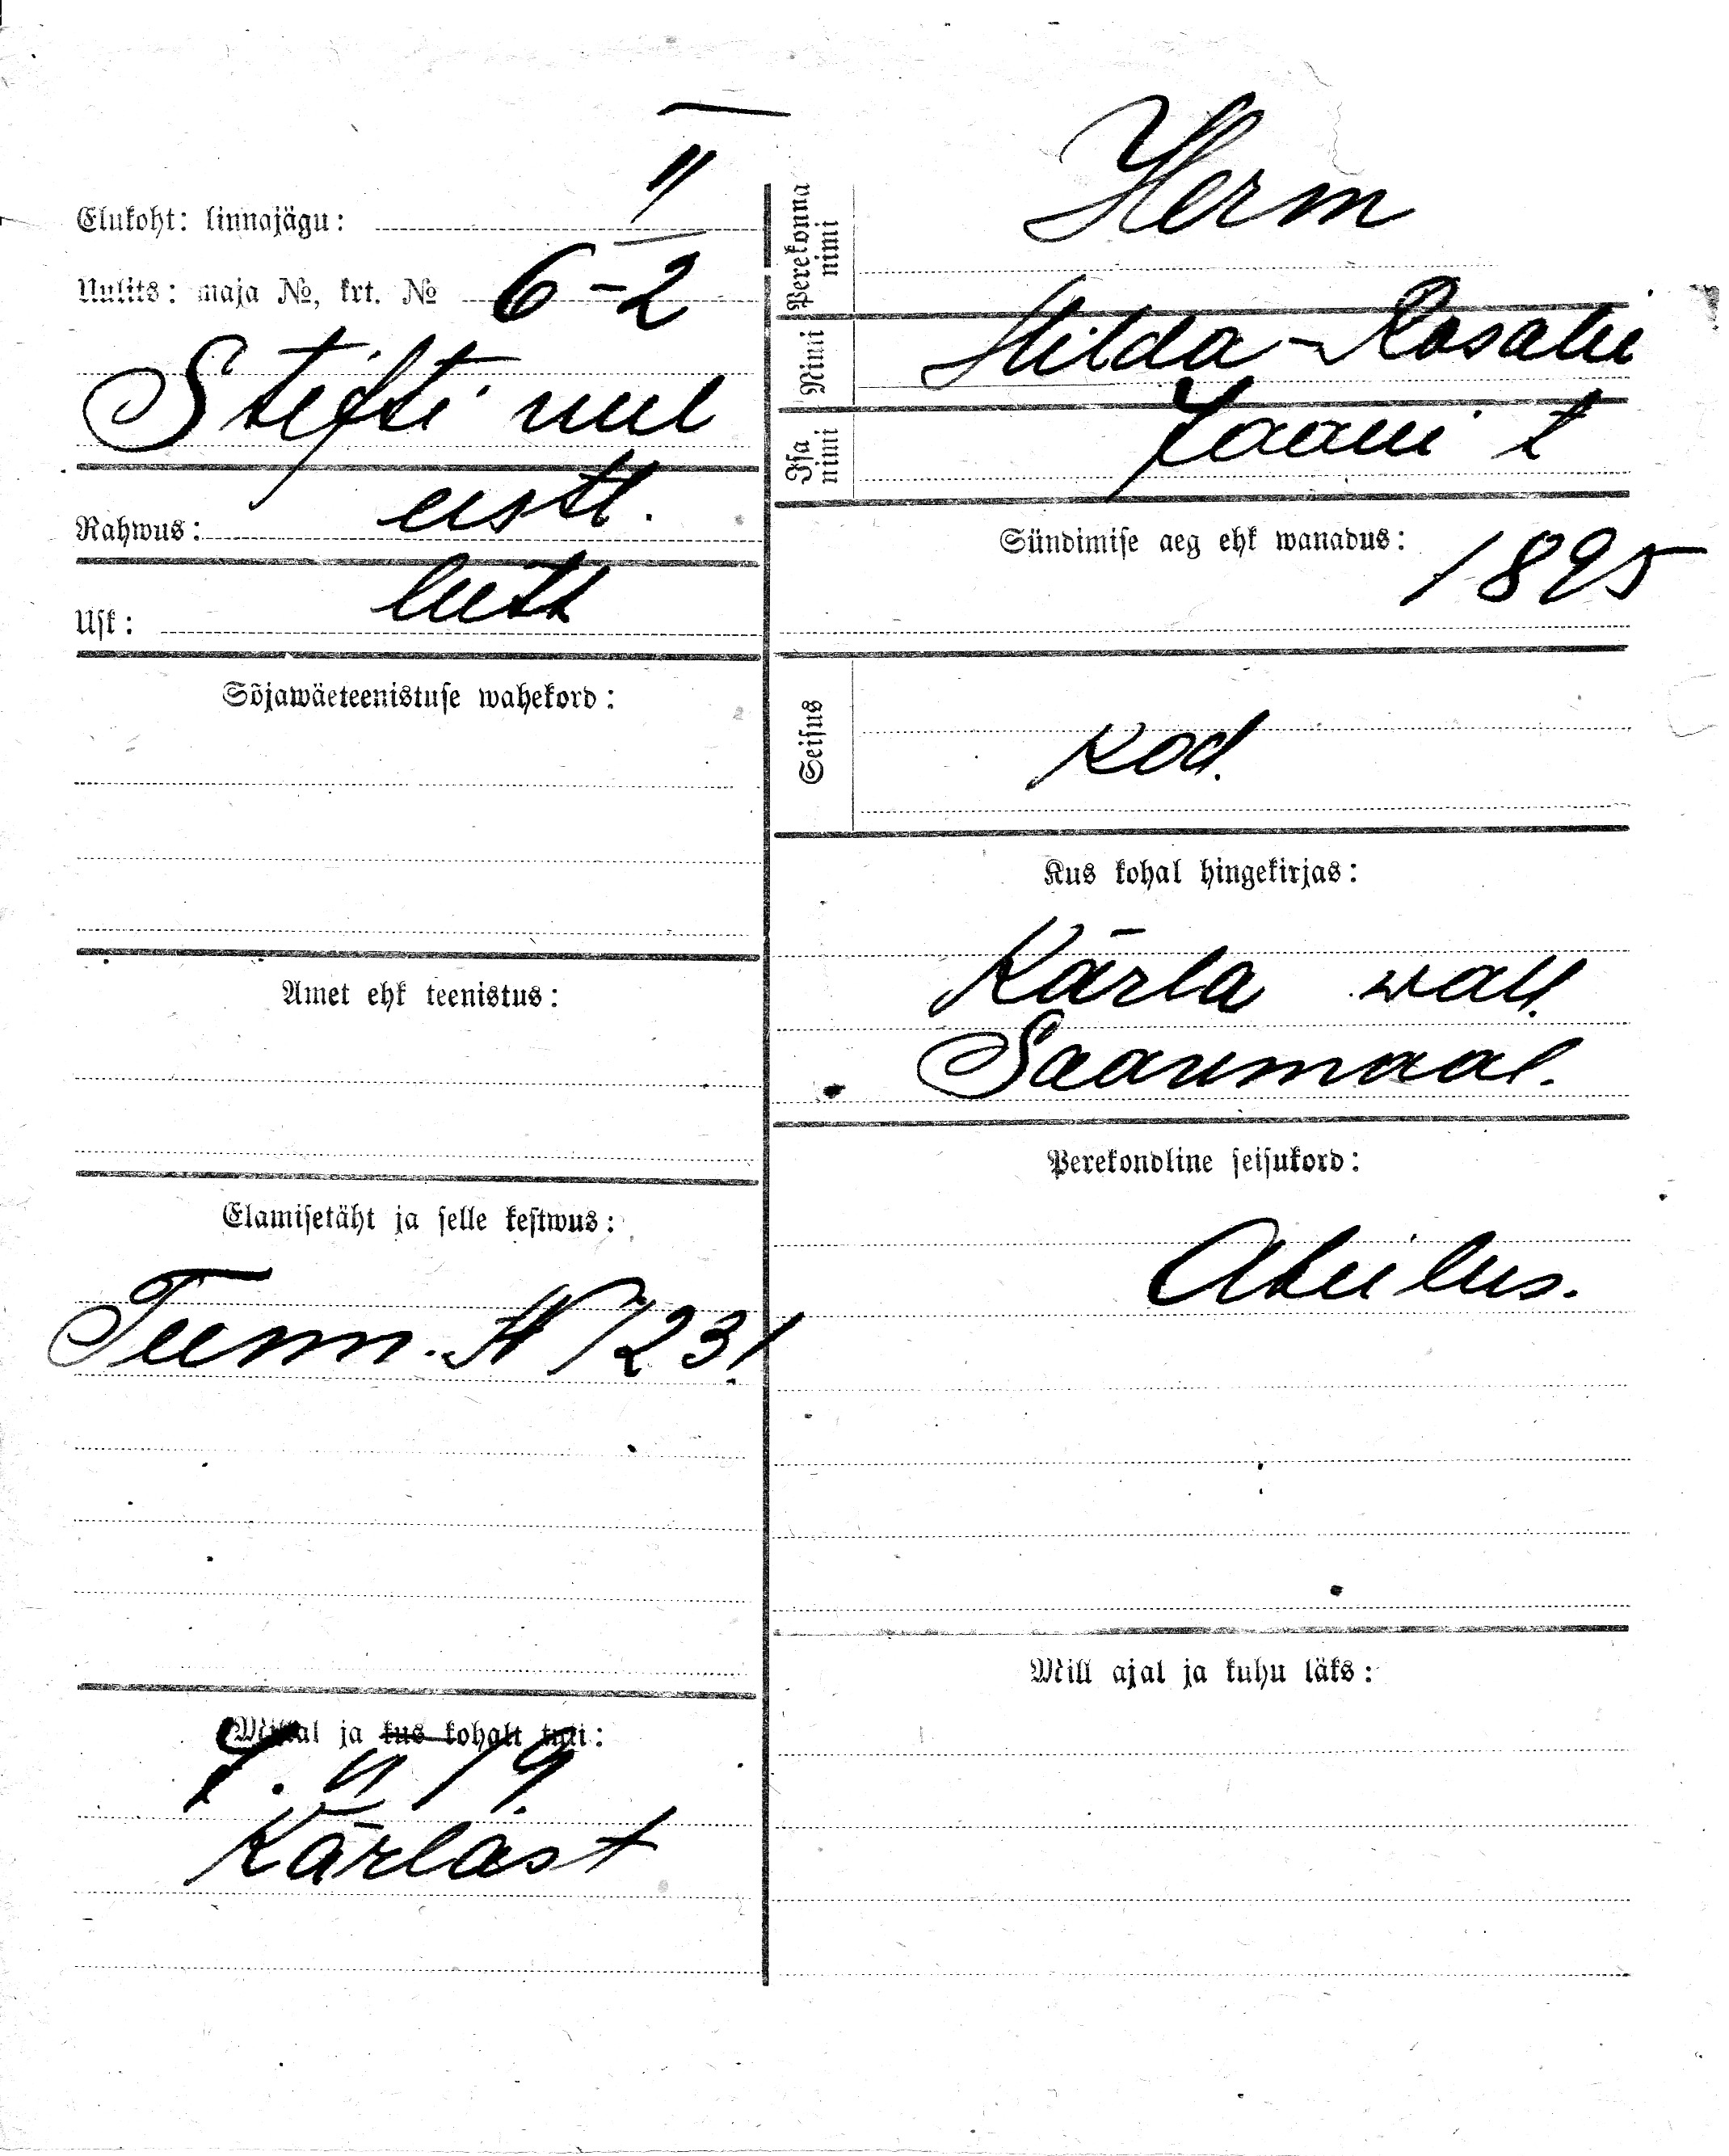 Elukoht: linnajägu: II
Uulits: maja №, krt. № 6-2
Stifti uul
Rahwus: eestl.
Usk: lutt
Sõjawäeteenistuse wahekord:
Amet ehk teenistus:
Elamisetäht ja selle kestwus:
Tunn. № 1231
Millal ja kus kohalt tuli:
7. II 19.
Kärlast
Perekonna nimi Herm
Nimi Hilda-Rosalie
Isa nimi Jaani t
Sündimise aeg ehk wanadus: 1895
Seisus kod.
Kus kohal hingekirjas:
Kärla wall.
Saaremaal.
Perekondline seisukord:
Abielus.
Mill ajal ja kuhu läks: